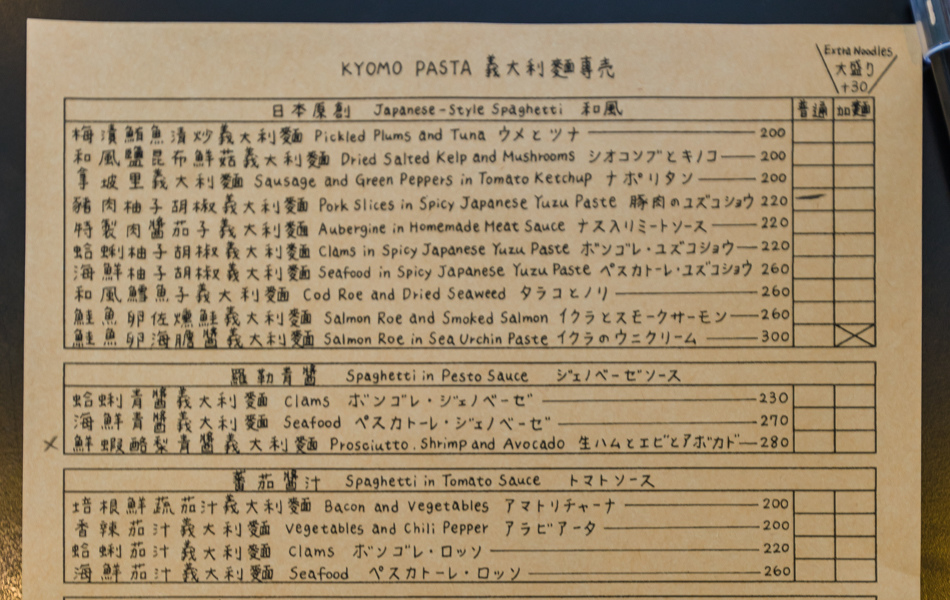 KYOMO PASTA 義大利麵專売
Extra Noodles
大盛り
+30
日本原創 Japanese-Style Spaghetti 和風 普通 加麵
梅漬鮪魚漬炒義大利麵 Pickled Plums and Tuna ウメとツナ 200
和風鹽昆布鮮菇義大利麵 Dried Salted Kelp and Mushrooms シオコンブとキノコ 200
拿坡里義大利麵 Sausage and Green Peppers in Tomato Ketchup ナポリタン 200
豬肉柚子胡椒義大利麵 Pork Slices in Spicy Japanese Yuzu Paste 豚肉のユズコショウ 220
特製肉醬茄子義大利麵 Aubergine in Homemade Meat Sauce ナス入りミートソース 220
蛤蜊柚子胡椒義大利麵 Clams in Spicy Japanese Yuzu Paste ボンゴレ・ユズコショウ 220
海鮮柚子胡椒義大利麵 Seafood in Spicy Japanese Yuzu Paste ペスカトーレ・ユズコショウ 260
和風鱈魚子義大利麵 Cod Roe and Dried Seaweed タラコとノリ 260
鮭魚卵佐燻鮭義大利麵 Salmon Roe and Smoked Salmon イクラとスモークサーモン 260
鮭魚卵海膽醬義大利麵 Salmon Roe in Sea Urchin Paste イクラのウニクリーム 300
羅勒青醬 Spaghetti in Pesto Sauce ジェノベーゼソース
蛤蜊青醬義大利麵 Clams ボンゴレ・ジェノベーゼ 230
海鮮青醬義大利麵 Seafood ペスカトーレ・ジェノベーゼ 270
鮮蝦酪梨青醬義大利麵 Prosciutto. Shrimp and Avocado 生ハムとエビとアボカド 280
蕃茄醬汁 Spaghetti in Tomato Sauce トマトソース
培根鮮蔬茄汁義大利麵 Bacon and Vegetables アマトリチャーナ 200
香辣茄汁義大利麵 Vegetables and Chili Pepper アラビアータ 200
蛤蜊茄汁義大利麵 Clams ボンゴレ・ロッソ 220
海鮮茄汁義大利麵 Seafood ペスカトーレ・ロッソ 260